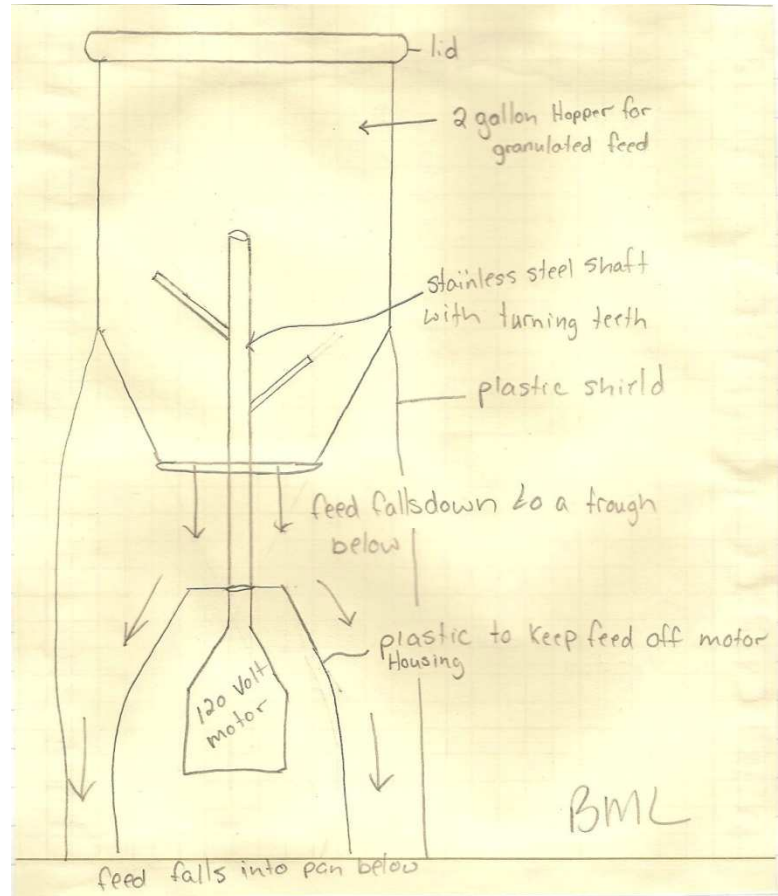 lid
2 gallon Hopper for
granulated feed
stainless steel shaft
with turning teeth
plastic shield
feed fallsdown to a trough
below
plastic to keep feed off motor
Housing
120 Volt
motor
BML
feed falls into pan below